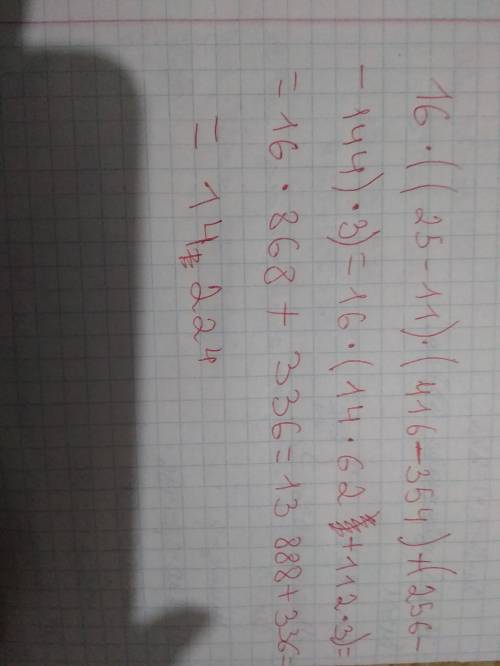 16·((25-11)·(416-354)+(256-
-144)·3)=16·(14·62+112·3)=
=16·868+336=13 888+336=
=14224